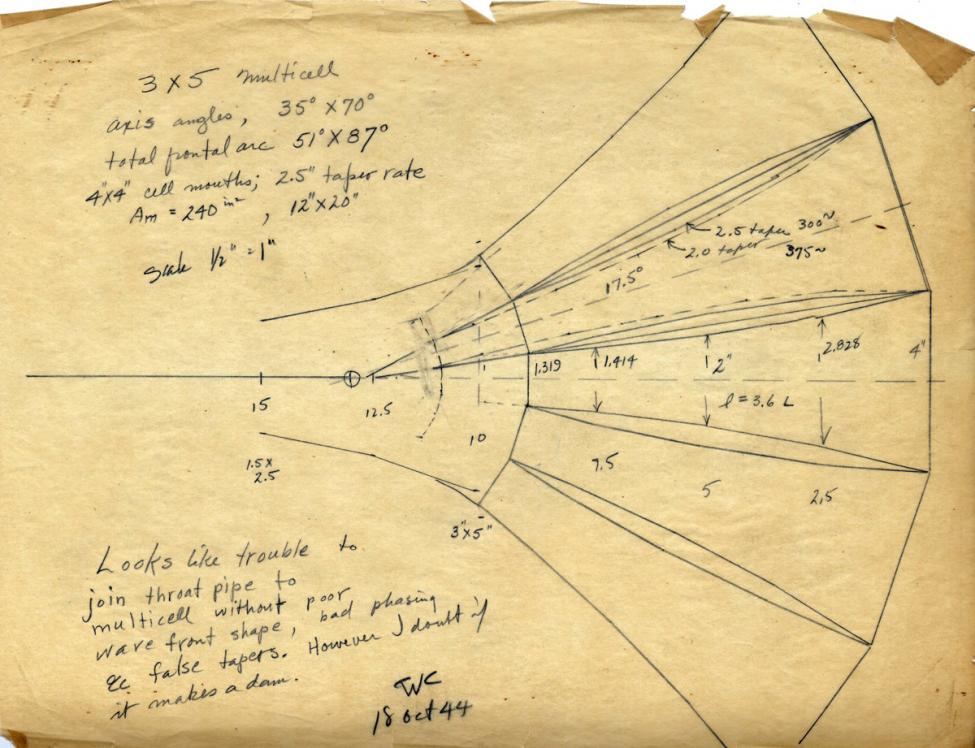 3 X 5 multicell
axis angles, 35° X 70°
total frontal arc 51° X 87°
4"x4" cell mouths; 2.5" taper rate
Am = 240 in², 12"X20"
Scale 1/2" = 1"
2.5 taper 300~
2.0 taper
375~
17.5°
1.319
1.414
2"
2.828
4"
l = 3.6 L
15
12.5
10
7.5
5
2.5
1.5 X
2.5
3"x5"
Looks like trouble to
join throat pipe to
multicell without poor
wave front shape, bad phasing
&c false tapers. However I doubt if
it makes a dam.
JWC
18 Oct 44